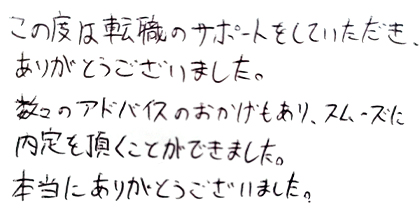 この度は転職のサポートをしていただき、
ありがとうございました。
数々のアドバイスのおかげもあり、スムーズに
内定を頂くことができました。
本当にありがとうございました。